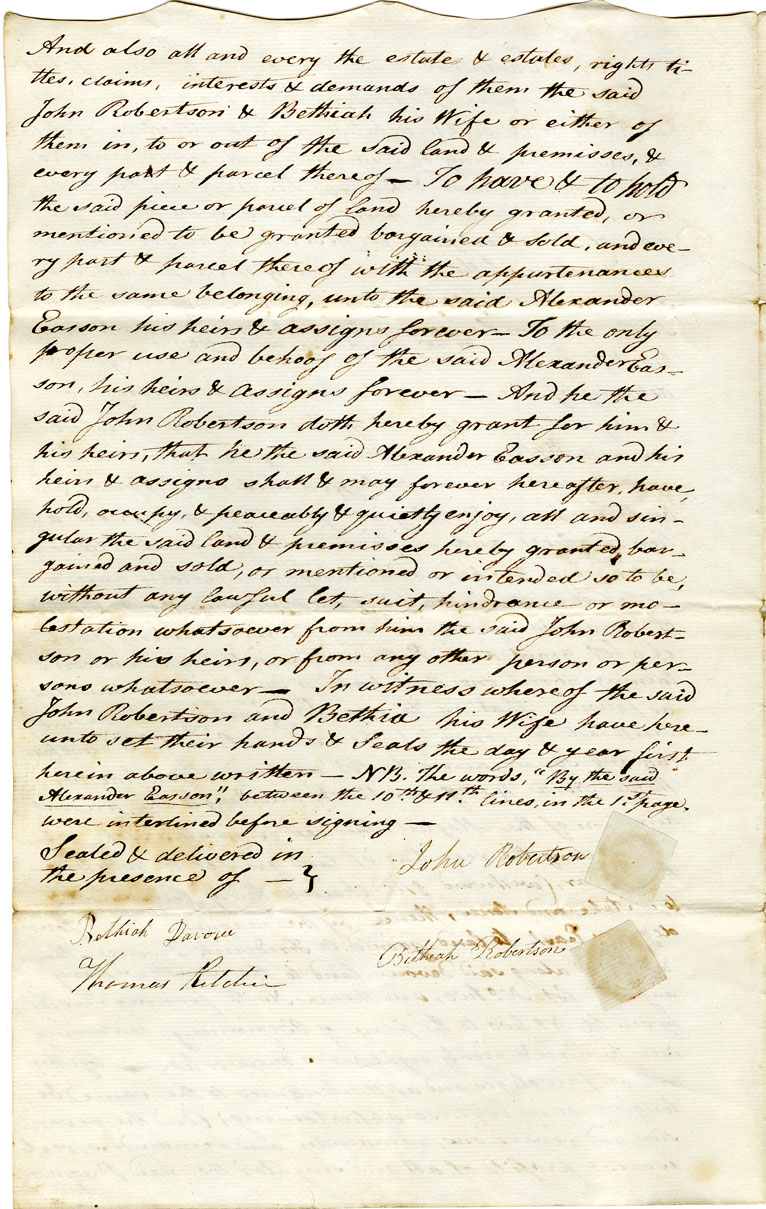 And also all and every the estate & estates, rights ti-
tles, claims, interests & demands of them the said
John Robertson & Bethiah his Wife or either of
them in, to or out of the said land & premisses, &
every part & parcel thereof — To have & to hold
the said piece or parcel of land hereby granted, or
mentioned to be granted bargained & sold, and eve-
ry part & parcel thereof with the appurtenances
to the same belonging, unto the said Alexander
Easson his heirs & assigns forever — To the only
proper use and behoof of the said Alexander Eas-
son, his heirs & assigns forever — And he the
said John Robertson doth hereby grant for him &
his heirs, that he the said Alexander Easson and his
heirs & assigns shall & may forever hereafter, have,
hold, occupy, & peaceably & quietly enjoy, all and sin-
gular the said land & premisses hereby granted, bar-
gained and sold, or mentioned or intended so to be,
without any lawful let, suit, hindrance or mo-
lestation whatsoever from him the said John Robert-
son or his heirs, or from any other person or per-
sons whatsoever — In witness whereof the said
John Robertson and Bethia his Wife have here-
unto set their hands & Seals the day & year first
herein above written — NB. The words, "By the said
Alexander Easson", between the 10th & 11th lines, in the 1st page.
were interlined before signing —
Sealed & delivered in
the presence of —
John Robertson
Bethiah
Thomas Ritchie
Bethiah Robertson